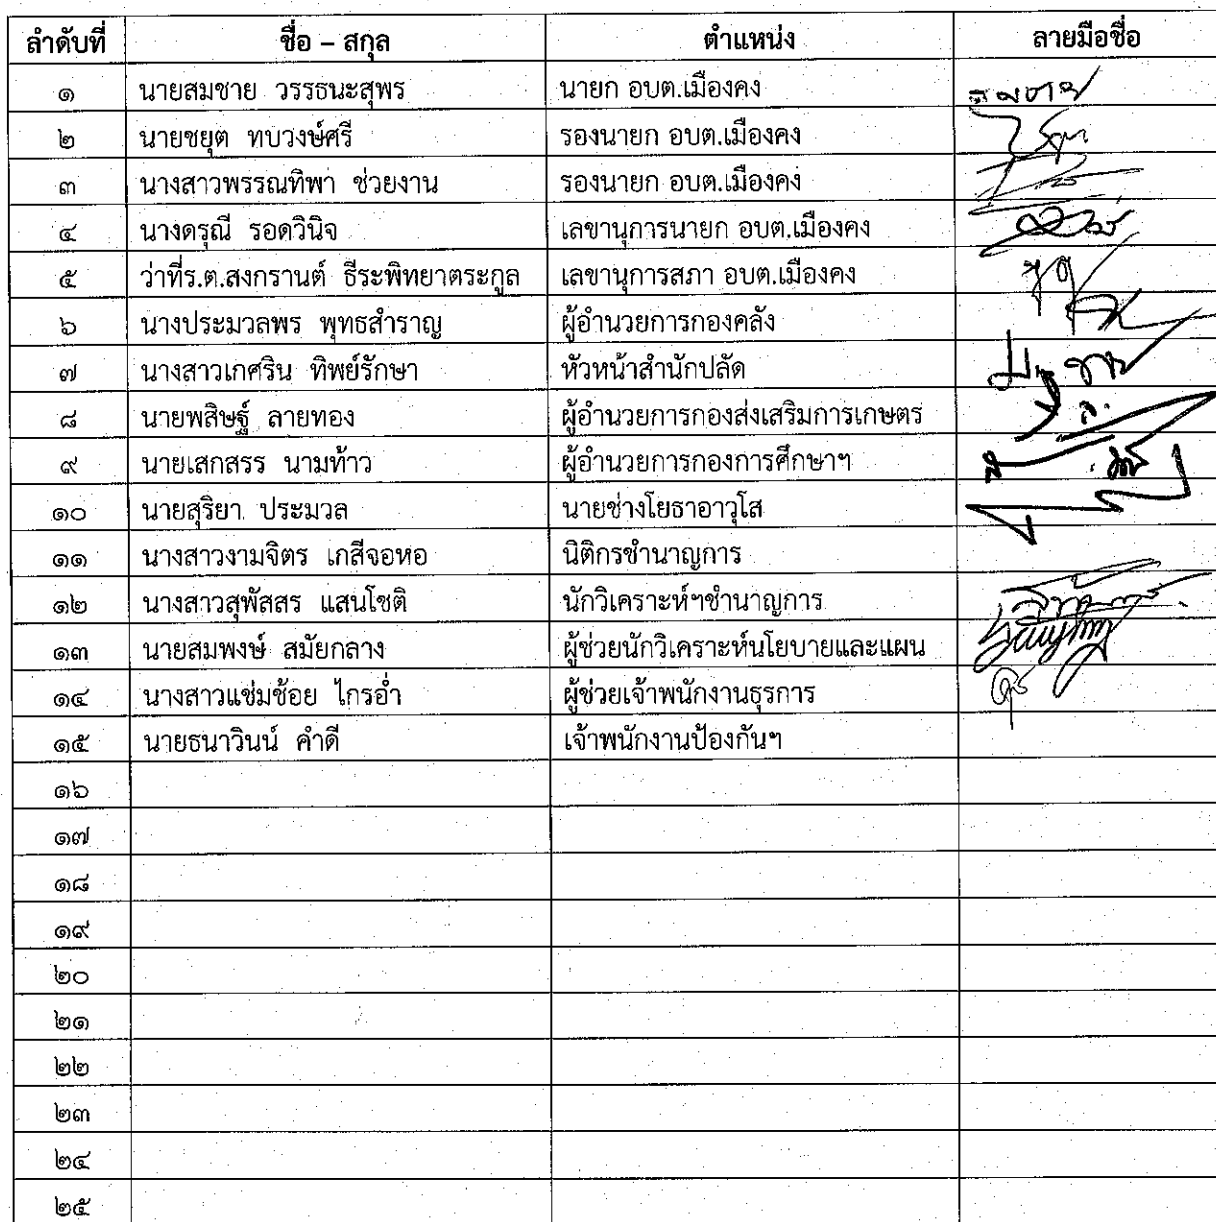 ลำดับที่ ชื่อ – สกุล ตำแหน่ง ลายมือชื่อ
๑ นายสมชาย วรรธนะสุพร นายก อบต.เมืองคง สมชาย
๒ นายชยุต ทบวงษ์ศรี รองนายก อบต.เมืองคง
๓ นางสาวพรรณทิพา ช่วยงาน รองนายก อบต.เมืองคง
๔ นางดรุณี รอดวินิจ เลขานุการนายก อบต.เมืองคง
๕ ว่าที่ร.ต.สงกรานต์ ธีระพิทยาตระกูล เลขานุการสภา อบต.เมืองคง
๖ นางประมวลพร พุทธสำราญ ผู้อำนวยการกองคลัง
๗ นางสาวเกศริน ทิพย์รักษา หัวหน้าสำนักปลัด
๘ นายพสิษฐ์ ลายทอง ผู้อำนวยการกองส่งเสริมการเกษตร
๙ นายเสกสรร นามท้าว ผู้อำนวยการกองการศึกษาฯ
๑๐ นายสุริยา ประมวล นายช่างโยธาอาวุโส
๑๑ นางสาวงามจิตร เกสีจอหอ นิติกรชำนาญการ
๑๒ นางสาวสุพัสสร แสนโชติ นักวิเคราะห์ฯชำนาญการ
๑๓ นายสมพงษ์ สมัยกลาง ผู้ช่วยนักวิเคราะห์นโยบายและแผน
๑๔ นางสาวแช่มช้อย ไกรอ่ำ ผู้ช่วยเจ้าพนักงานธุรการ
๑๕ นายธนาวินน์ คำดี เจ้าพนักงานป้องกันฯ
๑๖
๑๗
๑๘
๑๙
๒๐
๒๑
๒๒
๒๓
๒๔
๒๕